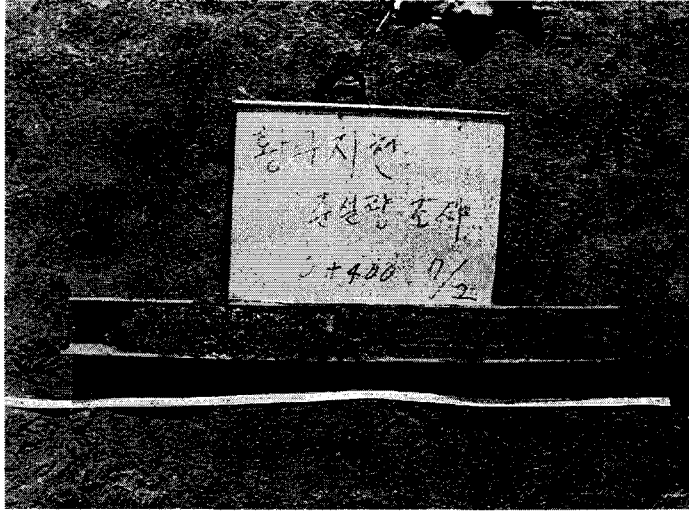 황구지천
준설량 조사
0+400 7/2